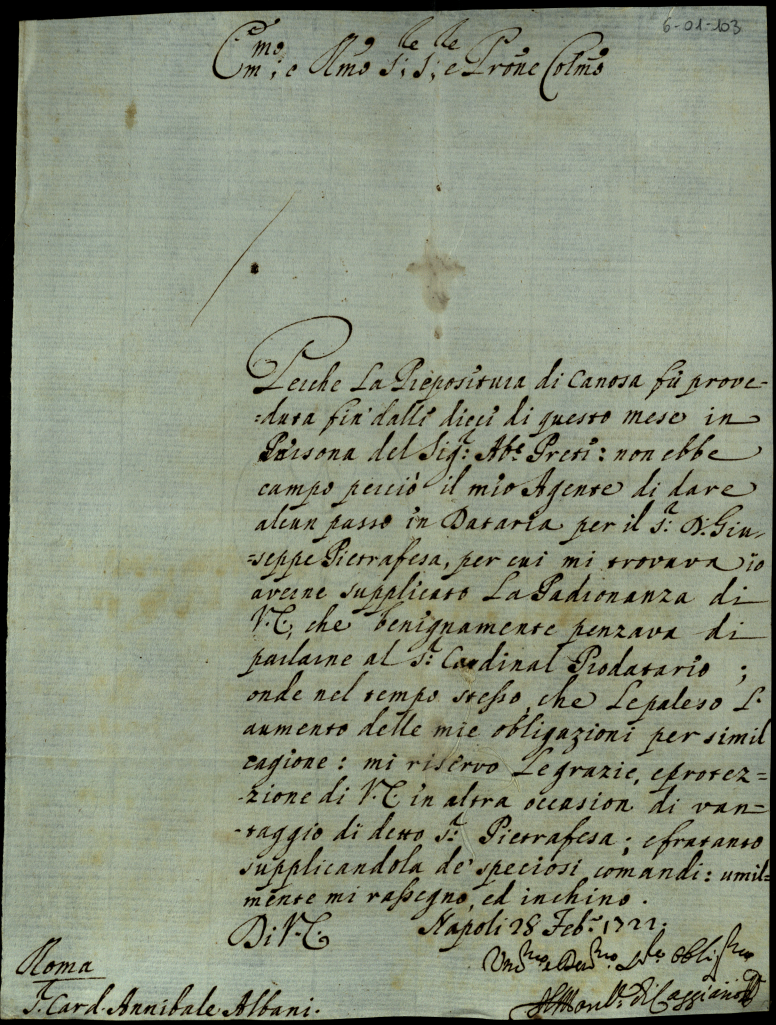 6-01-103
Em.mo e Rmo S.re S.re e Prone Colmo
Perche La Prepositura di Canosa fù prove-
=duta fin' dalli dieci di questo mese in
Persona del Sig.r Ab.e Preti: non ebbe
campo perciò il mio Agente di dare
alcun passo in Dataria per il S.r D. Giu-
=seppe Pietrafesa, per cui mi trovava io
averne supplicato La Padronanza di
V.E., che benignamente penzava di
parlarne al S.r Cardinal Prodatario;
onde nel tempo stesso, che Le paleso L'
aumento delle mie obligazioni per simil
cagione: mi riservo Le grazie, e protez=
-zione di V.E. in altra occasion di van=
-taggio di detto S.r Pietrafesa; e fratanto
supplicandola de' speciosi comandi: umil=
mente mi rassegno, ed inchino.
Di V.E. Napoli 28 Feb.o 1722.
Roma
S.r Card. Annibale Albani.
di Caggiano